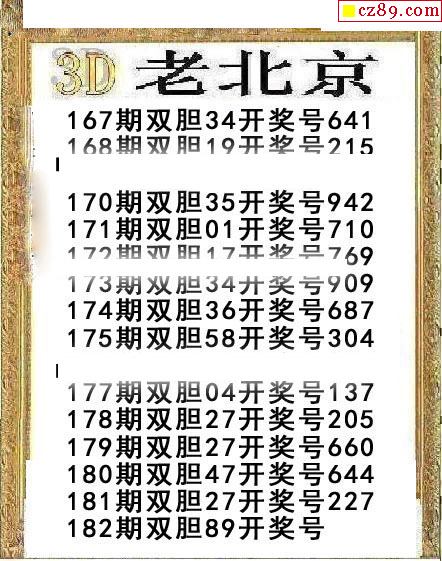 cz89.com
3D 老北京
167期双胆34开奖号641
168期双胆19开奖号215
170期双胆35开奖号942
171期双胆01开奖号710
172期双胆17开奖号769
173期双胆34开奖号909
174期双胆36开奖号687
175期双胆58开奖号304
177期双胆04开奖号137
178期双胆27开奖号205
179期双胆27开奖号660
180期双胆47开奖号644
181期双胆27开奖号227
182期双胆89开奖号